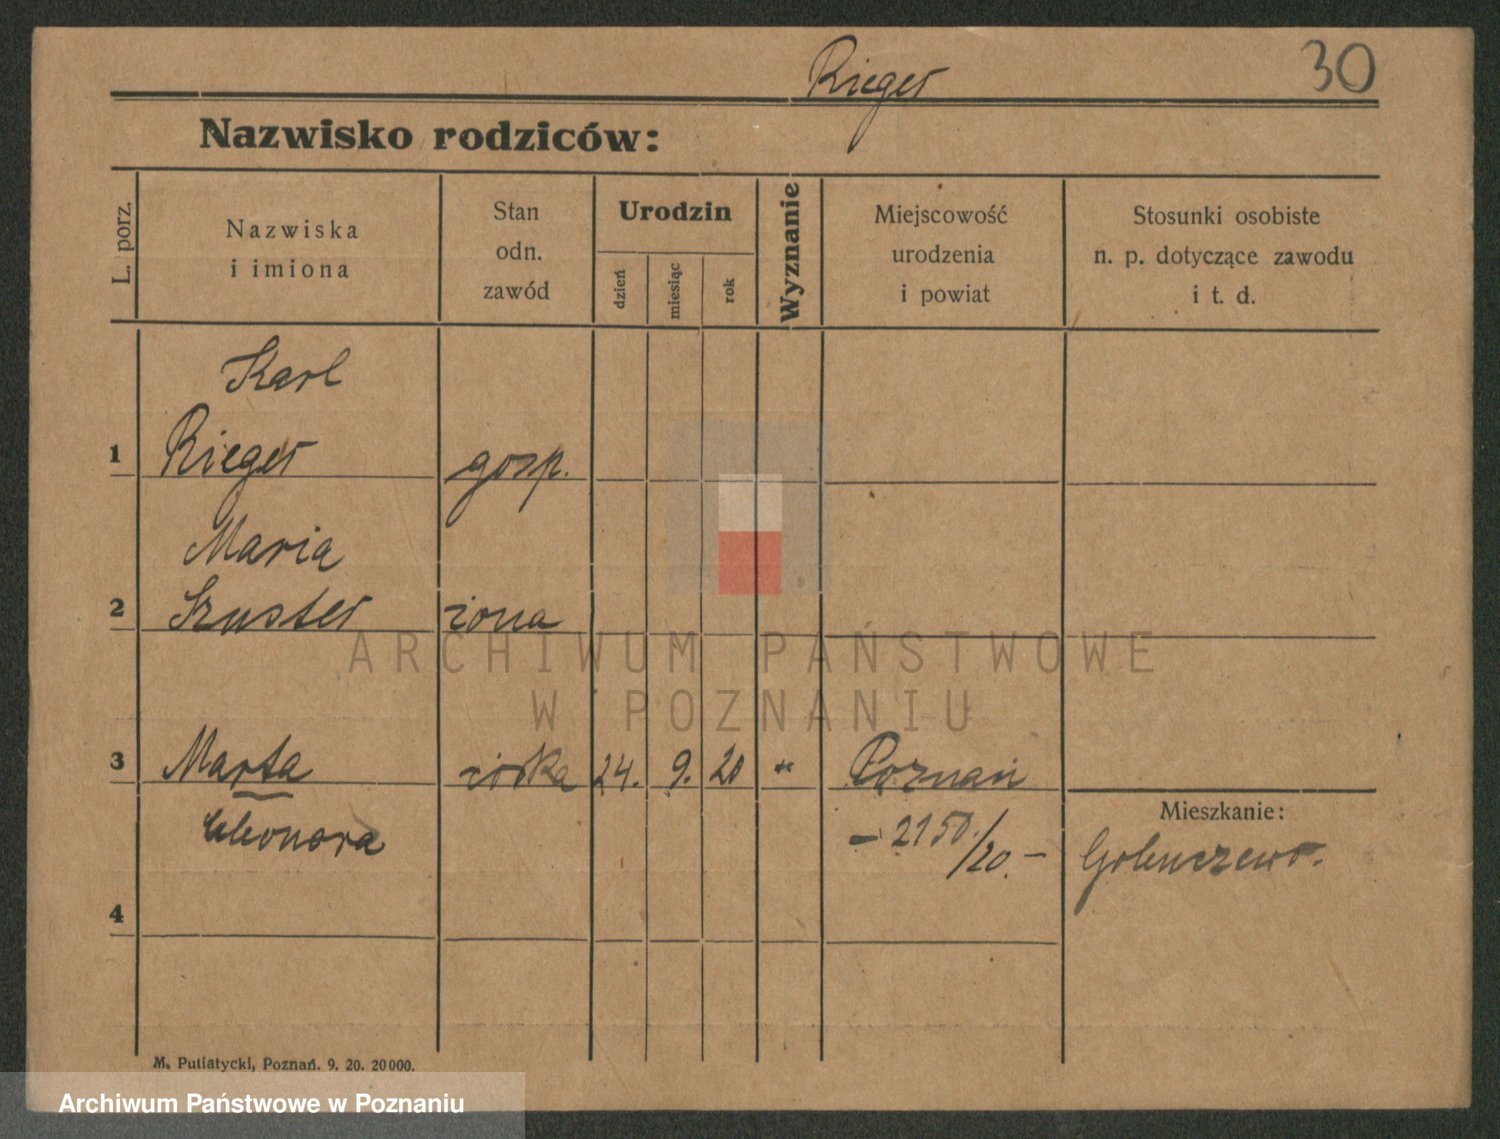 Rieger
30
Nazwisko rodziców:
L. porz.
Nazwiska
i imiona
Stan
odn.
zawód
Urodzin
dzień
miesiąc
rok
Wyznanie
Miejscowość
urodzenia
i powiat
Stosunki osobiste
n. p. dotyczące zawodu
i t. d.
Karl
1 Rieger gosp.
Maria
2 Szuster żona
3 Marta córka 24. 9. 20 Poznań
Mieszkanie:
Eleonora
- 2150/20.-
Golenczewo.
4
M. Putiatycki, Poznań. 9. 20. 20000.
ARCHIWUM PAŃSTWOWE
W POZNANIU
Archiwum Państwowe w Poznaniu